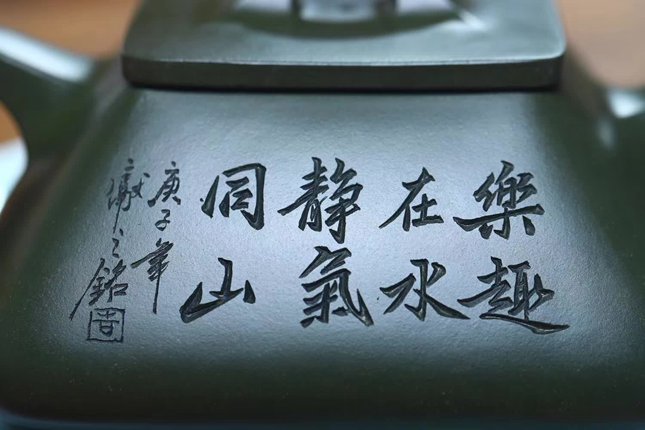 樂趣
在水
静氣
同山
庚子年
之銘